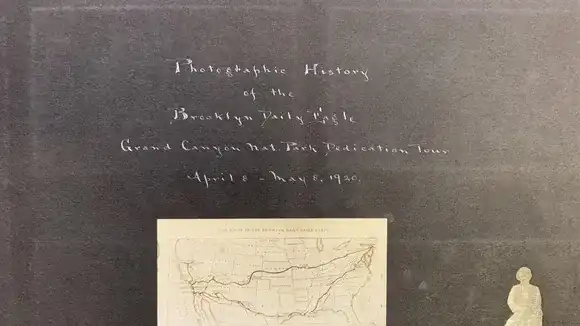 Photographic History
of the
Brooklyn Daily Eagle
Grand Canyon Nat. Park Dedication Tour
April 8 - May 8, 1920.